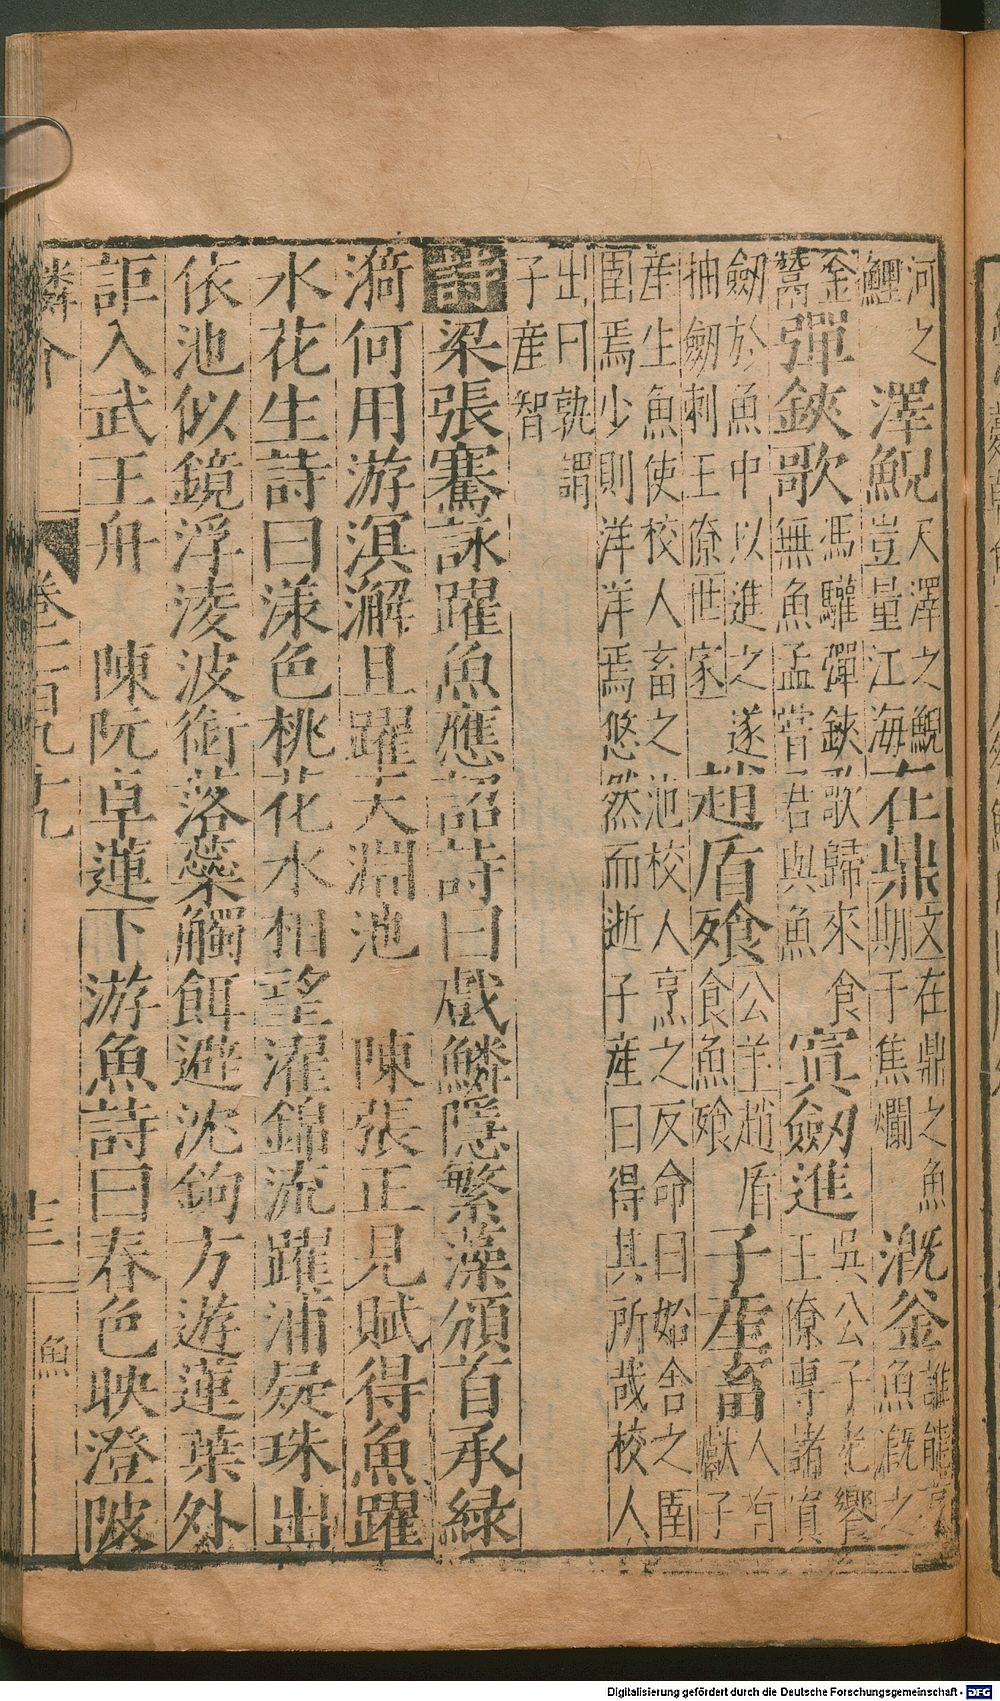 河之鯉澤鯢天澤之鯢豈量江海在鼎文在鼎之魚期于焦爛溉釜誰能亨魚溉之
金鬵彈鋏歌馮驩彈鋏歌歸來食無魚孟嘗君與魚寘劒進吳公子光饗王僚專諸寘
劒於魚中以進之遂抽劒刺王僚世家趙盾飱公羊趙盾食魚飱子產畜人有獻子
產生魚使校人畜之池校人烹之反命曰始舍之圉圉焉少則洋洋焉悠然而逝子產曰得其所哉校人
出曰孰謂子產智
詩梁張騫詠躍魚應詔詩曰戲鱗隱繁藻頒首承綠
漪何用游溟澥且躍天淵池　陳張正見賦得魚躍
水花生詩曰漾色桃花水相望濯錦流躍浦疑珠出
依池似鏡浮凌波銜落蘂觸餌避沈鉤方遊蓮葉外
詎入武王舟　陳阮卓蓮下游魚詩曰春色映澄陂
鱗介　卷一百九十九　十三　魚
Digitalisierung gefördert durch die Deutsche Forschungsgemeinschaft - DFG